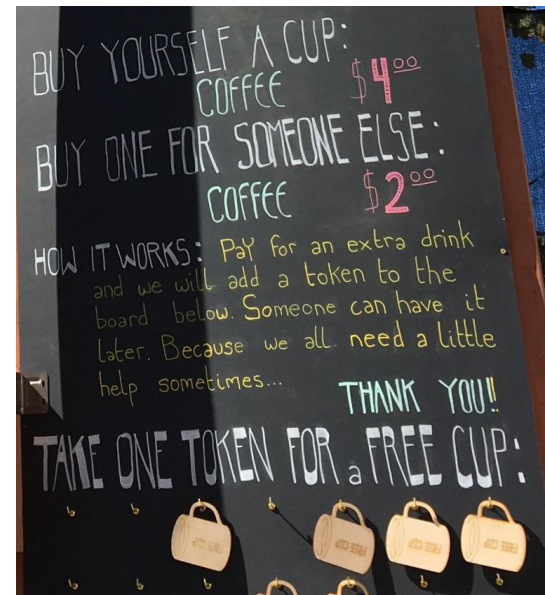 BUY YOURSELF A CUP:
COFFEE $4.00
BUY ONE FOR SOMEONE ELSE:
COFFEE $2.00
HOW IT WORKS: Pay for an extra drink
and we will add a token to the
board below. Someone can have it
later. Because we all need a little
help sometimes...
THANK YOU!!
TAKE ONE TOKEN FOR a FREE CUP:
FREE CUP
FREE CUP
FREE CUP
FREE CUP